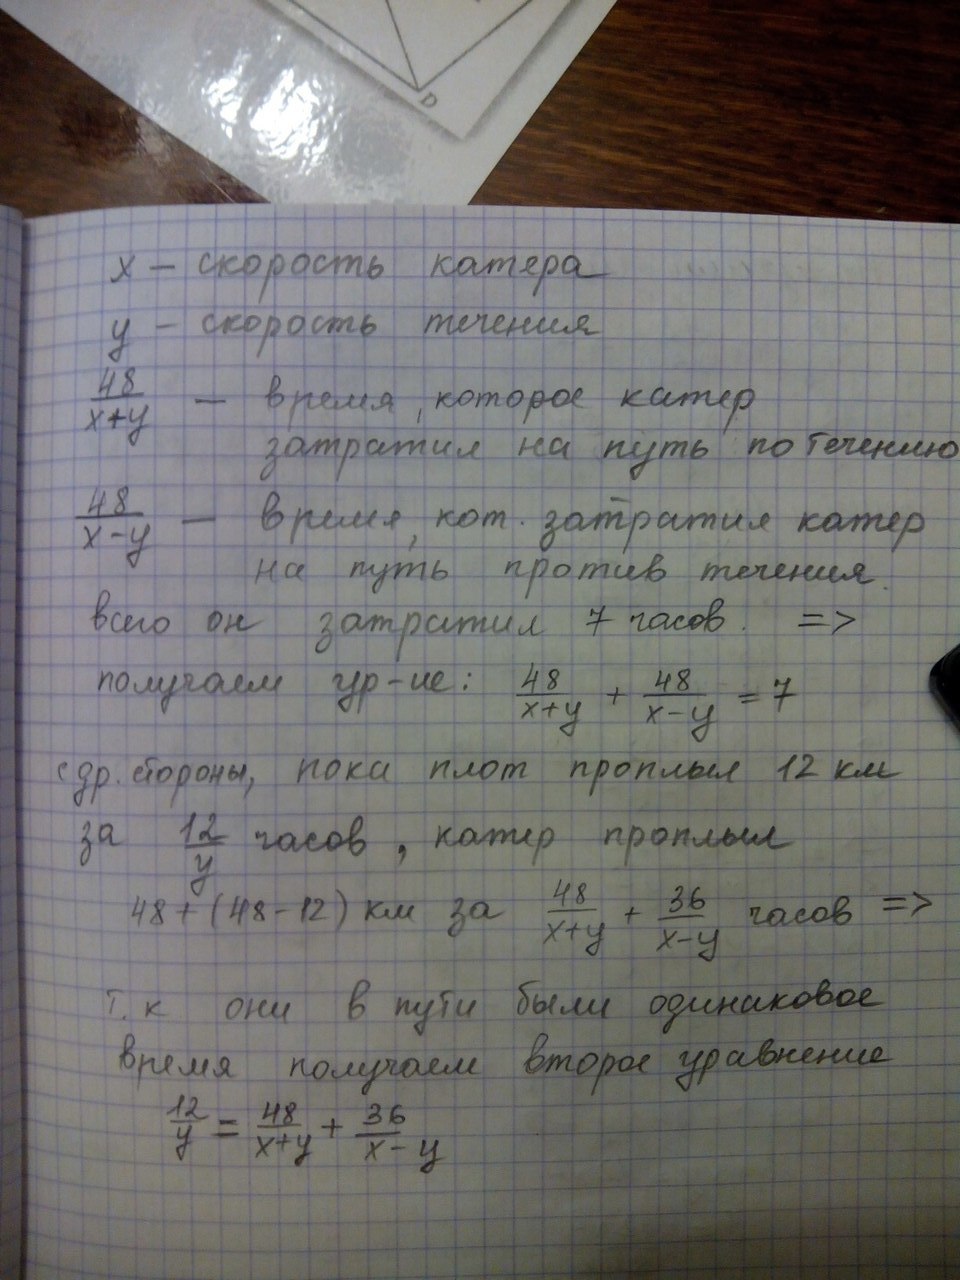 D
x – скорость катера
y – скорость течения
48/(x+y) — время, которое катер
затратил на путь по течению
48/(x-y) — время, кот. затратил катер
на путь против течения.
всего он затратил 7 часов. =>
получаем ур-ие: 48/(x+y) + 48/(x-y) = 7
с др. стороны, пока плот проплыл 12 км
за 12/y часов, катер проплыл
48+(48-12) км за 48/(x+y) + 36/(x-y) часов =>
т.к они в пути были одинаковое
время получаем второе уравнение
12/y = 48/(x+y) + 36/(x-y)